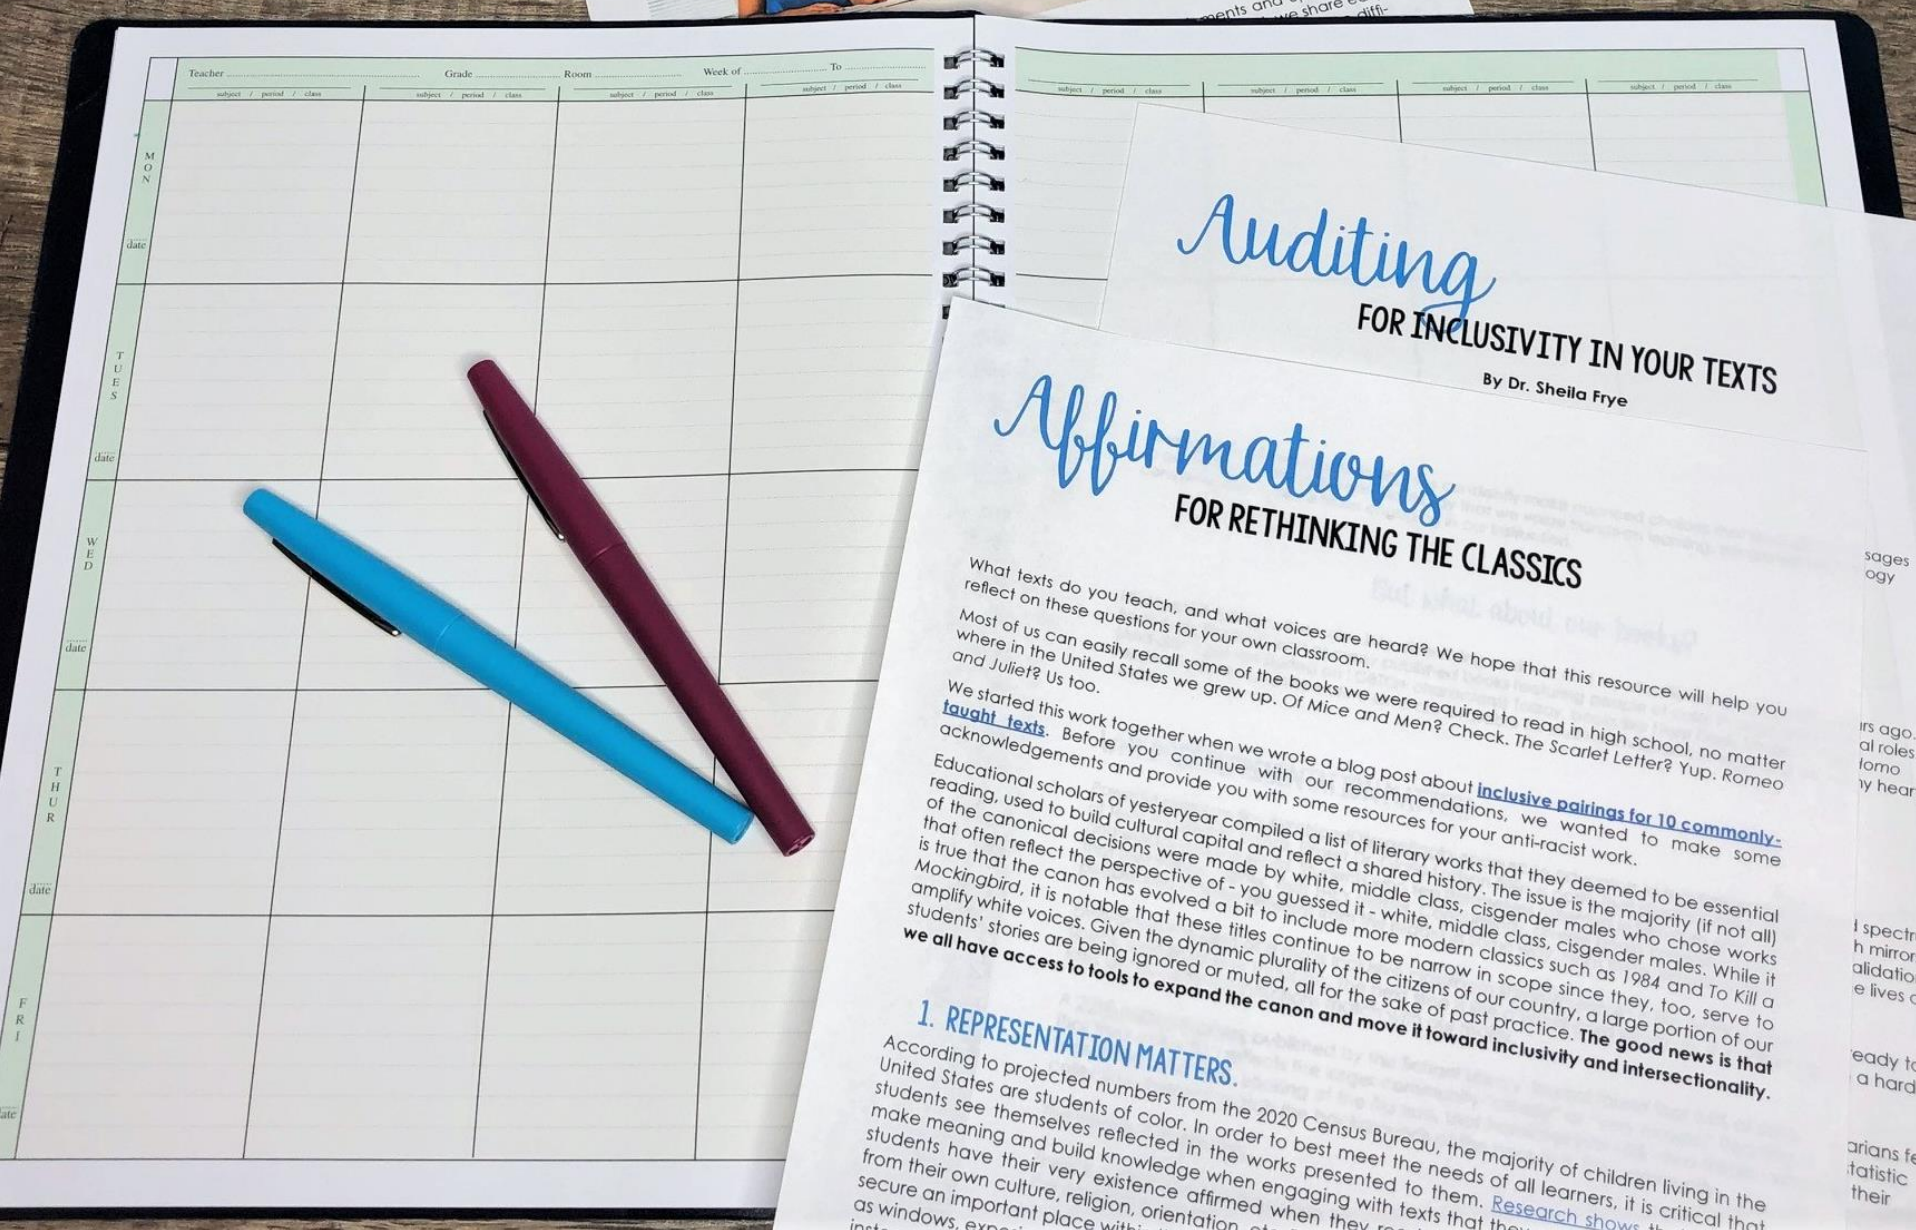 ments and
we share
diffi-
Teacher Grade Room Week of To
subject / period / class subject / period / class subject / period / class subject / period / class
subject / period / class subject / period / class subject / period / class subject / period / class
MON
date
TUES
date
WED
date
THUR
date
FRI
ate
Auditing
FOR INCLUSIVITY IN YOUR TEXTS
By Dr. Sheila Frye
Affirmations
FOR RETHINKING THE CLASSICS
What texts do you teach, and what voices are heard? We hope that this resource will help you
reflect on these questions for your own classroom.
Most of us can easily recall some of the books we were required to read in high school, no matter
where in the United States we grew up. Of Mice and Men? Check. The Scarlet Letter? Yup. Romeo
and Juliet? Us too.
We started this work together when we wrote a blog post about inclusive pairings for 10 commonly-
taught texts. Before you continue with our recommendations, we wanted to make some
acknowledgements and provide you with some resources for your anti-racist work.
Educational scholars of yesteryear compiled a list of literary works that they deemed to be essential
reading, used to build cultural capital and reflect a shared history. The issue is the majority (if not all)
of the canonical decisions were made by white, middle class, cisgender males who chose works
that often reflect the perspective of - you guessed it - white, middle class, cisgender males. While it
is true that the canon has evolved a bit to include more modern classics such as 1984 and To Kill a
Mockingbird, it is notable that these titles continue to be narrow in scope since they, too, serve to
amplify white voices. Given the dynamic plurality of the citizens of our country, a large portion of our
students' stories are being ignored or muted, all for the sake of past practice. The good news is that
we all have access to tools to expand the canon and move it toward inclusivity and intersectionality.
1. REPRESENTATION MATTERS.
According to projected numbers from the 2020 Census Bureau, the majority of children living in the
United States are students of color. In order to best meet the needs of all learners, it is critical that
students see themselves reflected in the works presented to them. Research shows
make meaning and build knowledge when engaging with texts that
students have their very existence affirmed when they
from their own culture, religion, orientation,
secure an important place
as windows,
sages
ogy
rs ago.
al roles
y hear
spectr
mirror
alidatio
e lives
eady to
a hard
arians fe
tatistic
their